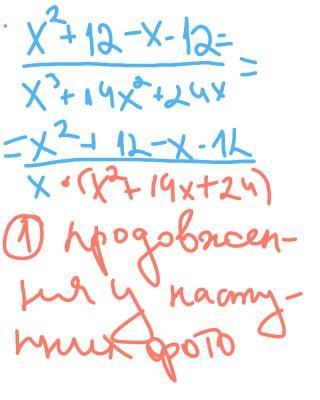 x² + 12 - x - 12 =
x³ + 14x² + 24x =
= x² + 12 - x - 12
x · (x² + 14x + 24)
① продовжен-
ня у насту-
пних фото